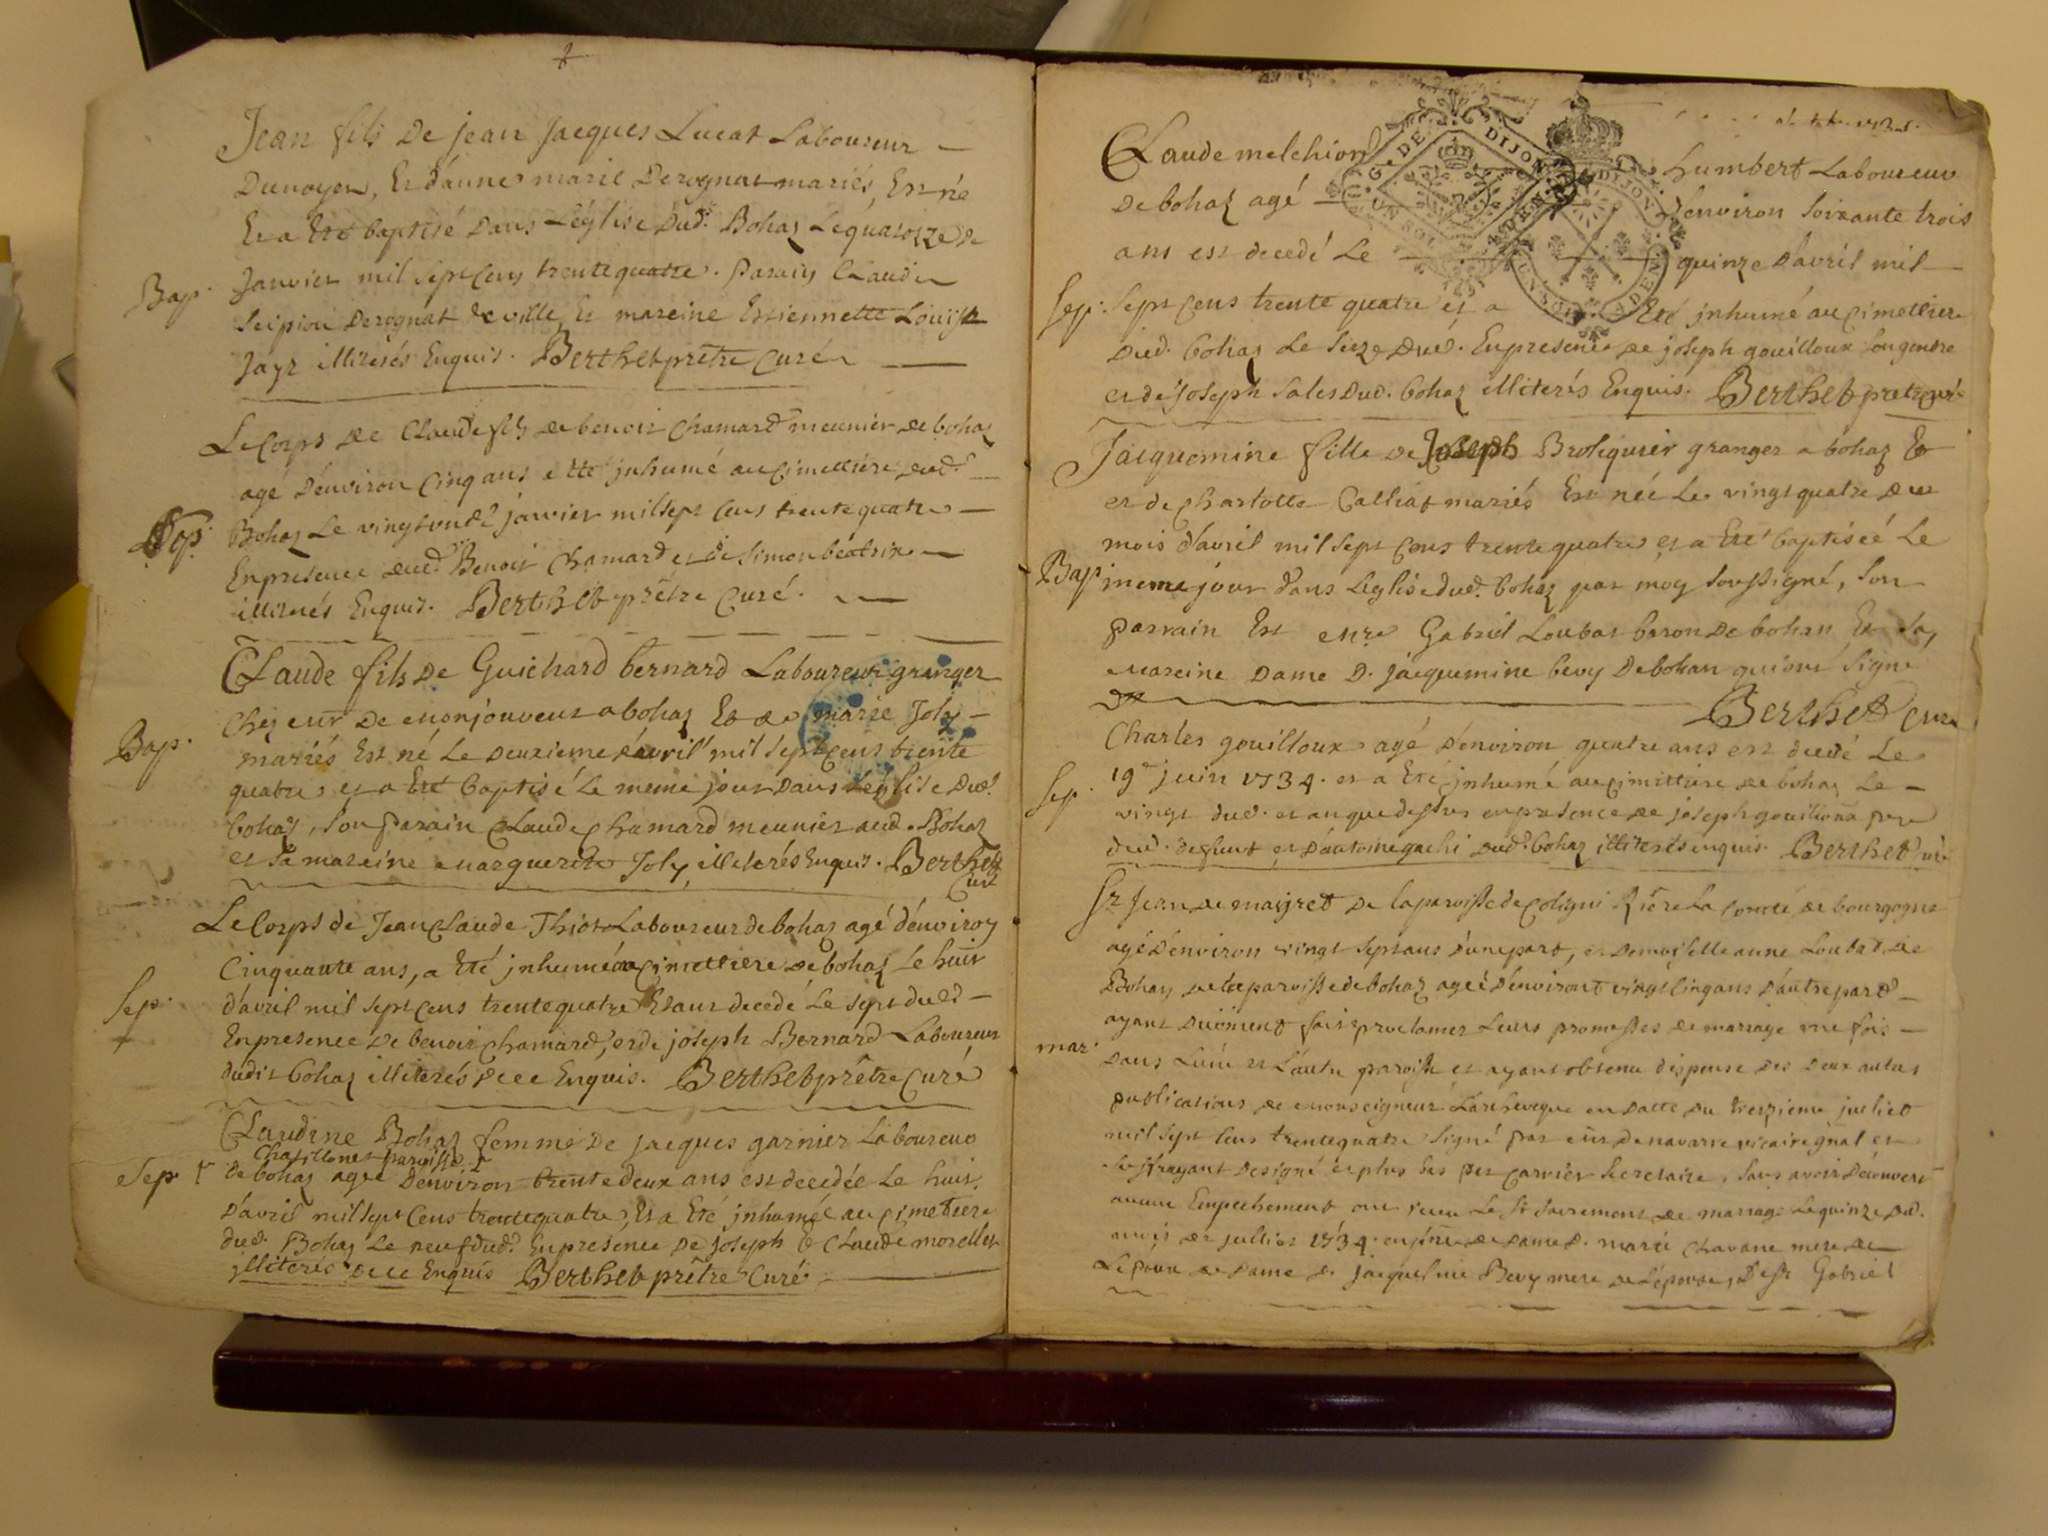 Jean fils De jean Jacques Lucat Laboureur
Dunoyer, Et d'anne marie Derognat mariés, Est né
Et a Eté baptisé Dans L'église Dud. Bohaz Le quatorze de
Bap. Janvier mil sept Cens trente quatre. Parain Claude
Scipion Derognat de ville Et mareine Estiennette Louise
Jayr illiterés Enquis. Berthet prêtre Curé
Le Corps De Claude fils de benoit Chamard meunier de bohaz
agé d'environ Cinq ans a été inhumé au Cimettiere dud.
Sep. Bohaz Le vingt janvier mil sept Cens trente quatre
En presence dud. Benoit Chamard et de Simon beatrix
illiterés Enquis. Berthet prêtre Curé.
Claude fils De Guichard bernard Laboureur granger
chez eur De monjouvent a bohaz Et de marie Joly
Bap. mariés Est né Le Deuxieme d'avril mil sept cens trente
quatre et a Eté baptisé Le meme jour Dans L'église Dud.
bohaz, son parain Claude Chamard meunier aud. Bohaz
et sa mareine marguerite Joly, illiterés Enquis. Berthet
Curé
Le Corps de Jean Claude Thiot Laboureur de bohaz agé d'environ
Cinquante ans, a Eté inhumé au Cimettiere de bohaz le huit
Sep. d'avril mil sept cens trente quatre Etant decedé Le sept dud.
En presence De benoit Chamard, et de joseph Bernard Laboureur
dudit bohaz illiterés de ce Enquis. Berthet prêtre Curé
Claudine Bohaz femme De jacques garnier Laboureur
Chatillonet paroisse
Sep. de bohaz agée D'environ trente deux ans est decedée Le huit
D'avril mil sept Cens trente quatre, Et a Eté inhumée au Cimetiere
dud. Bohaz Le neuf dud. En presence De joseph & Claude morellet
illiterés de ce Enquis Berthet prêtre Curé
Claude melchior humbert Laboureur
De bohaz agé d'environ soixante trois
ans est decedé Le quinze d'avril mil
Sep. sept Cens trente quatre et a Eté inhumé au Cimettiere
Dud. bohaz Le seize dud. En presence De joseph gouilloux son gendre
et de joseph Sales Dud. bohaz illiterés Enquis. Berthet pretre curé
Jacquemine fille De Joseph Broliquier granger a bohaz Et
et de Charlotte Calliat mariés Est née Le vingt quatre du
mois d'avril mil sept Cens trente quatre et a Eté baptisée Le
Bap. meme jour dans L'eglise dud. bohaz par moy soussigné, son
parrain Est Gabriel Loubat baron De bohan Et sa
mareine Dame D. jacquemine bevy De bohan qui ont signé
Berthet Curé
Charles gouilloux agé d'environ quatre ans est decedé Le
Sep. 19e juin 1734. et a Eté inhumé au cimittiere de bohaz Le
vingt dud. en presence de joseph gouilloux pere
dud. deffunt et d'antoine gachi dud. bohaz illiterés enquis. Berthet curé
Sr Jean de maijret De la paroisse de Coligni Riere La Comté de bourgogne
agé d'environ vingt sept ans d'une part, et Demoiselle anne Loubat de
Bohan de la paroisse de bohaz agée d'environt vingt cinq ans d'autre part
ayant Duëment fait proclamer Leurs promesses de mariage une fois
mar. Dans L'une et L'autre paroisse et ayant obtenu dispense Des deux autres
publications de monseigneur L'archeveque en datte du treizieme juliet
mil sept Cens trente quatre signé par De navarre vicaire gnal et
suffragant et plus bas par Carrier secretaire, sans avoir Découvert
aucun Empechement ont receu Le st sacrement de mariage Le quinze dud.
mois de julliet 1734. de dame D. marie Chavane mere de
L'epoux de Dame D. jacquemine Bevy mere de L'épouse, De sr Gabriel